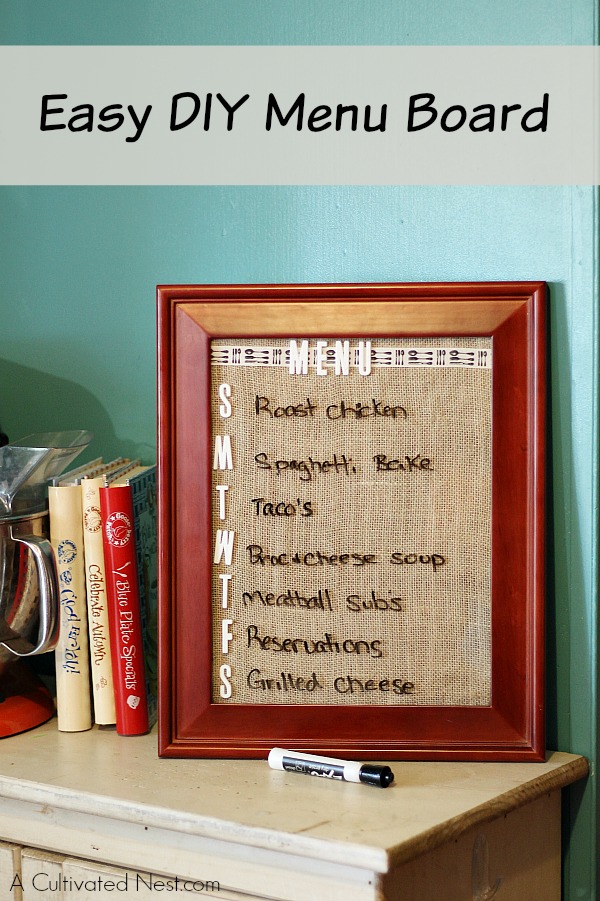 Easy DIY Menu Board
MENU
S Roast chicken
M Spaghetti Bake
T Taco's
W Broc+cheese soup
T Meatball sub's
F Reservations
S Grilled cheese
Celebrate Autumn
Blue Plate Specials
A Cultivated Nest.com